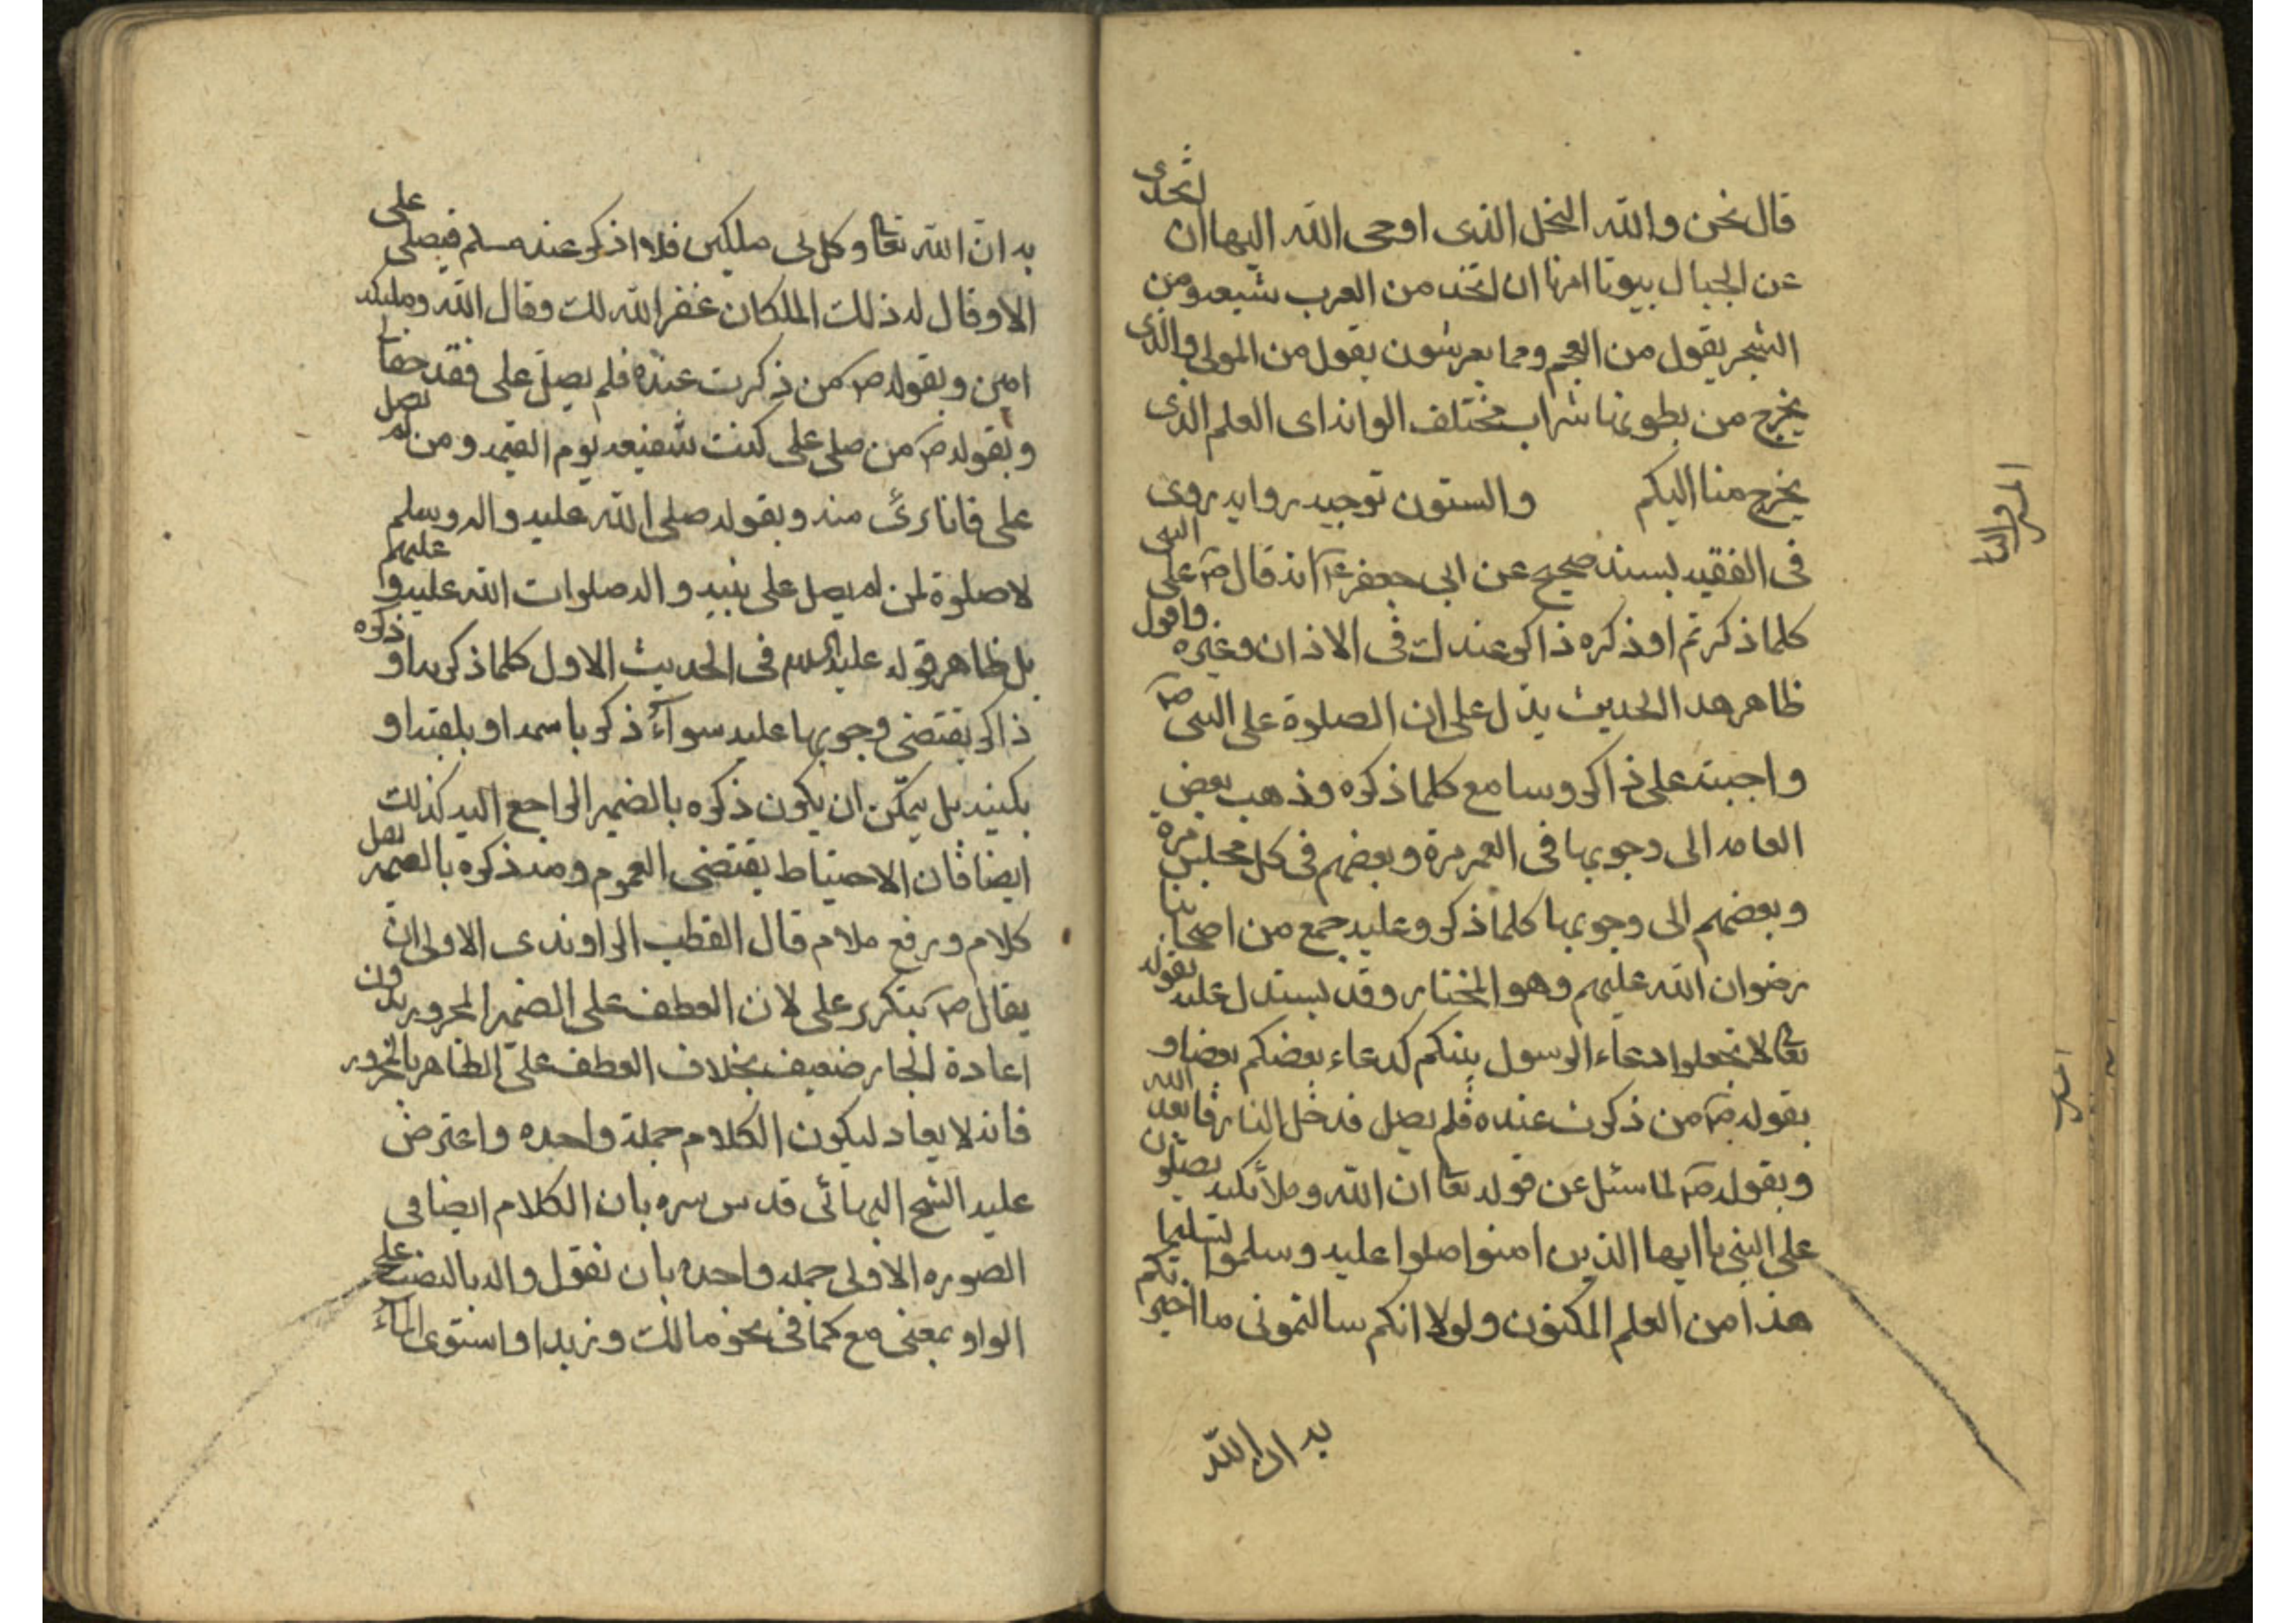 قال نحن والله النحل الذى اوحى الله اليها ان اتخذى
من الجبال بيوتا امرنا ان نتخذ من العرب شيعه ومن
الشجر يقول من العجم ومما يعرشون يقول من الموالى والذى
يخرج من بطونها شراب مختلف الوانه اى العلم الذى
يخرج منا اليكم والستون توجيه روايه روى
فى الفقيه بسند صحيح عن ابى جعفر ع انه قال ص على النبى
كلما ذكرته او ذكره ذاكر عندك فى الاذان وغيره واقول
ظاهر هذا الحديث يدل على ان الصلوة على النبى ص
واجبة على ذاكر وسامع كلما ذكره وذهب بعض
العامه الى وجوبها فى العمر مرة وبعضهم فى كل مجلس مرة
وبعضهم الى وجوبها كلما ذكر وعليه جمع من اصحابنا
رضوان الله عليهم وهو المختار وقد يستدل عليه بقوله
تعا لا تجعلوا دعاء الرسول بينكم كدعاء بعضكم بعضا و
بقوله ص من ذكرت عنده فلم يصل فدخل النار فابعده الله
وبقوله ص لما سئل عن قوله تعا ان الله وملائكته يصلون
على النبى يا ايها الذين امنوا صلوا عليه وسلموا تسليما
هذا من العلم المكنون ولولا انكم سالتمونى ما اخبرتكم
به ان الله
به ان الله تعا وكل بى ملكين فلا اذكر عند مسلم فيصلى على
الا وقال له ذلك الملكان غفر الله لك وقال الله وملئكته
امين وبقوله ص من ذكرت عنده فلم يصل على فقد خطا
وبقوله ص من صلى على كنت شفيعه يوم القيمه ومن لم يصل
على فانا برئ منه وبقوله صلى الله عليه واله وسلم
لا صلوة لمن لم يصل على نبيه واله صلوات الله عليه و عليهم
بل ظاهر قوله عليه السلام فى الحديث الاول كلما ذكرته او ذكره
ذاكر يقتضى وجوبها عليه سوآء ذكر باسمه او بلقبه او
بكنيته بل يمكن ان يكون ذكره بالضمير الراجع اليه كذلك
ايضا فان الاحتياط يقتضى العموم ومنه ذكره بالضمير نقل
كلام ورفع ملام قال القطب الراوندى الاولى ان
يقال ص بتكرير على لان العطف على الضمير المجرور بدون
اعادة الجار ضعيف بخلاف العطف على الظاهر المجرور
فانه لا يعاد ليكون الكلام جملة واحده واعترض
عليه الشيخ البهائى قدس سره بان الكلام ايضا فى
الصوره الاولى جمله واحده بان نقول واله بالنصب على
الواو بمعنى مع كما فى نحو مالك وزيدا واستوى المآء